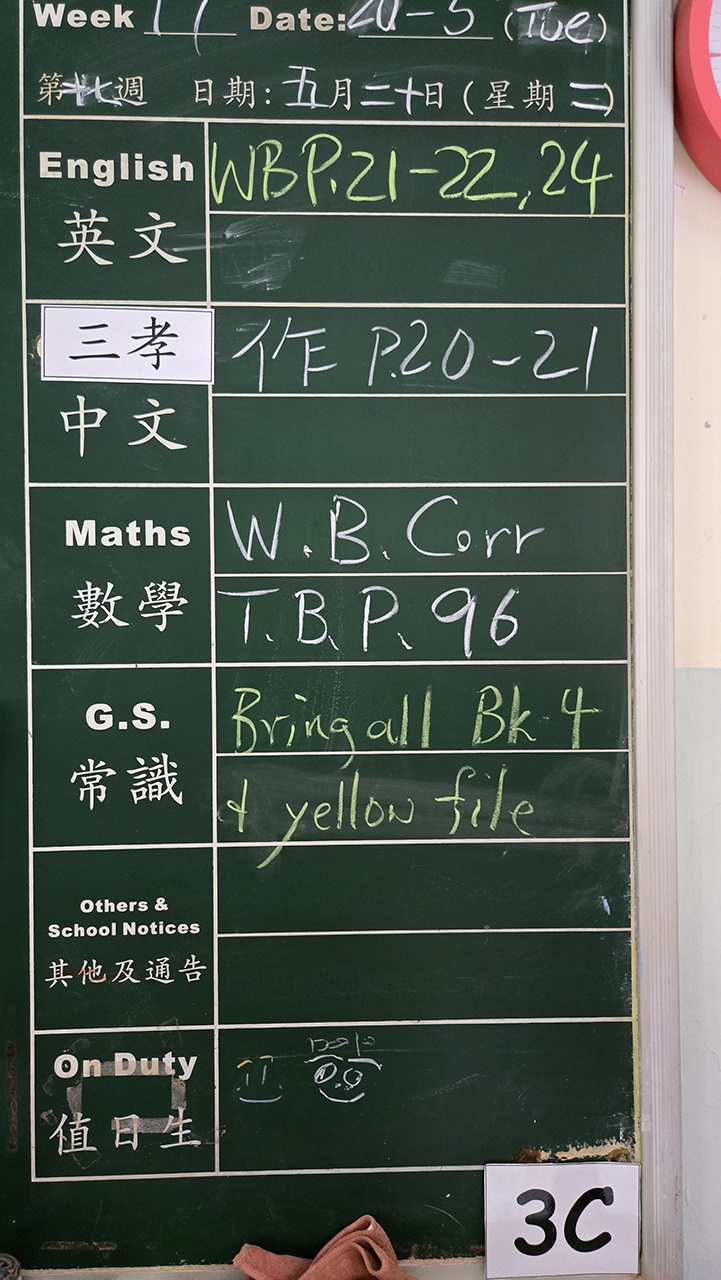 Week 17 Date: 20-5 (Tue)
第十七週 日期: 五月二十日 (星期二)
English WBP.21-22, 24
英文
三孝 作 P.20-21
中文
Maths W.B. Corr
數學 T.B.P. 96
G.S. Bring all Bk 4
常識 & yellow file
Others &
School Notices
其他及通告
On Duty
值日生
3C